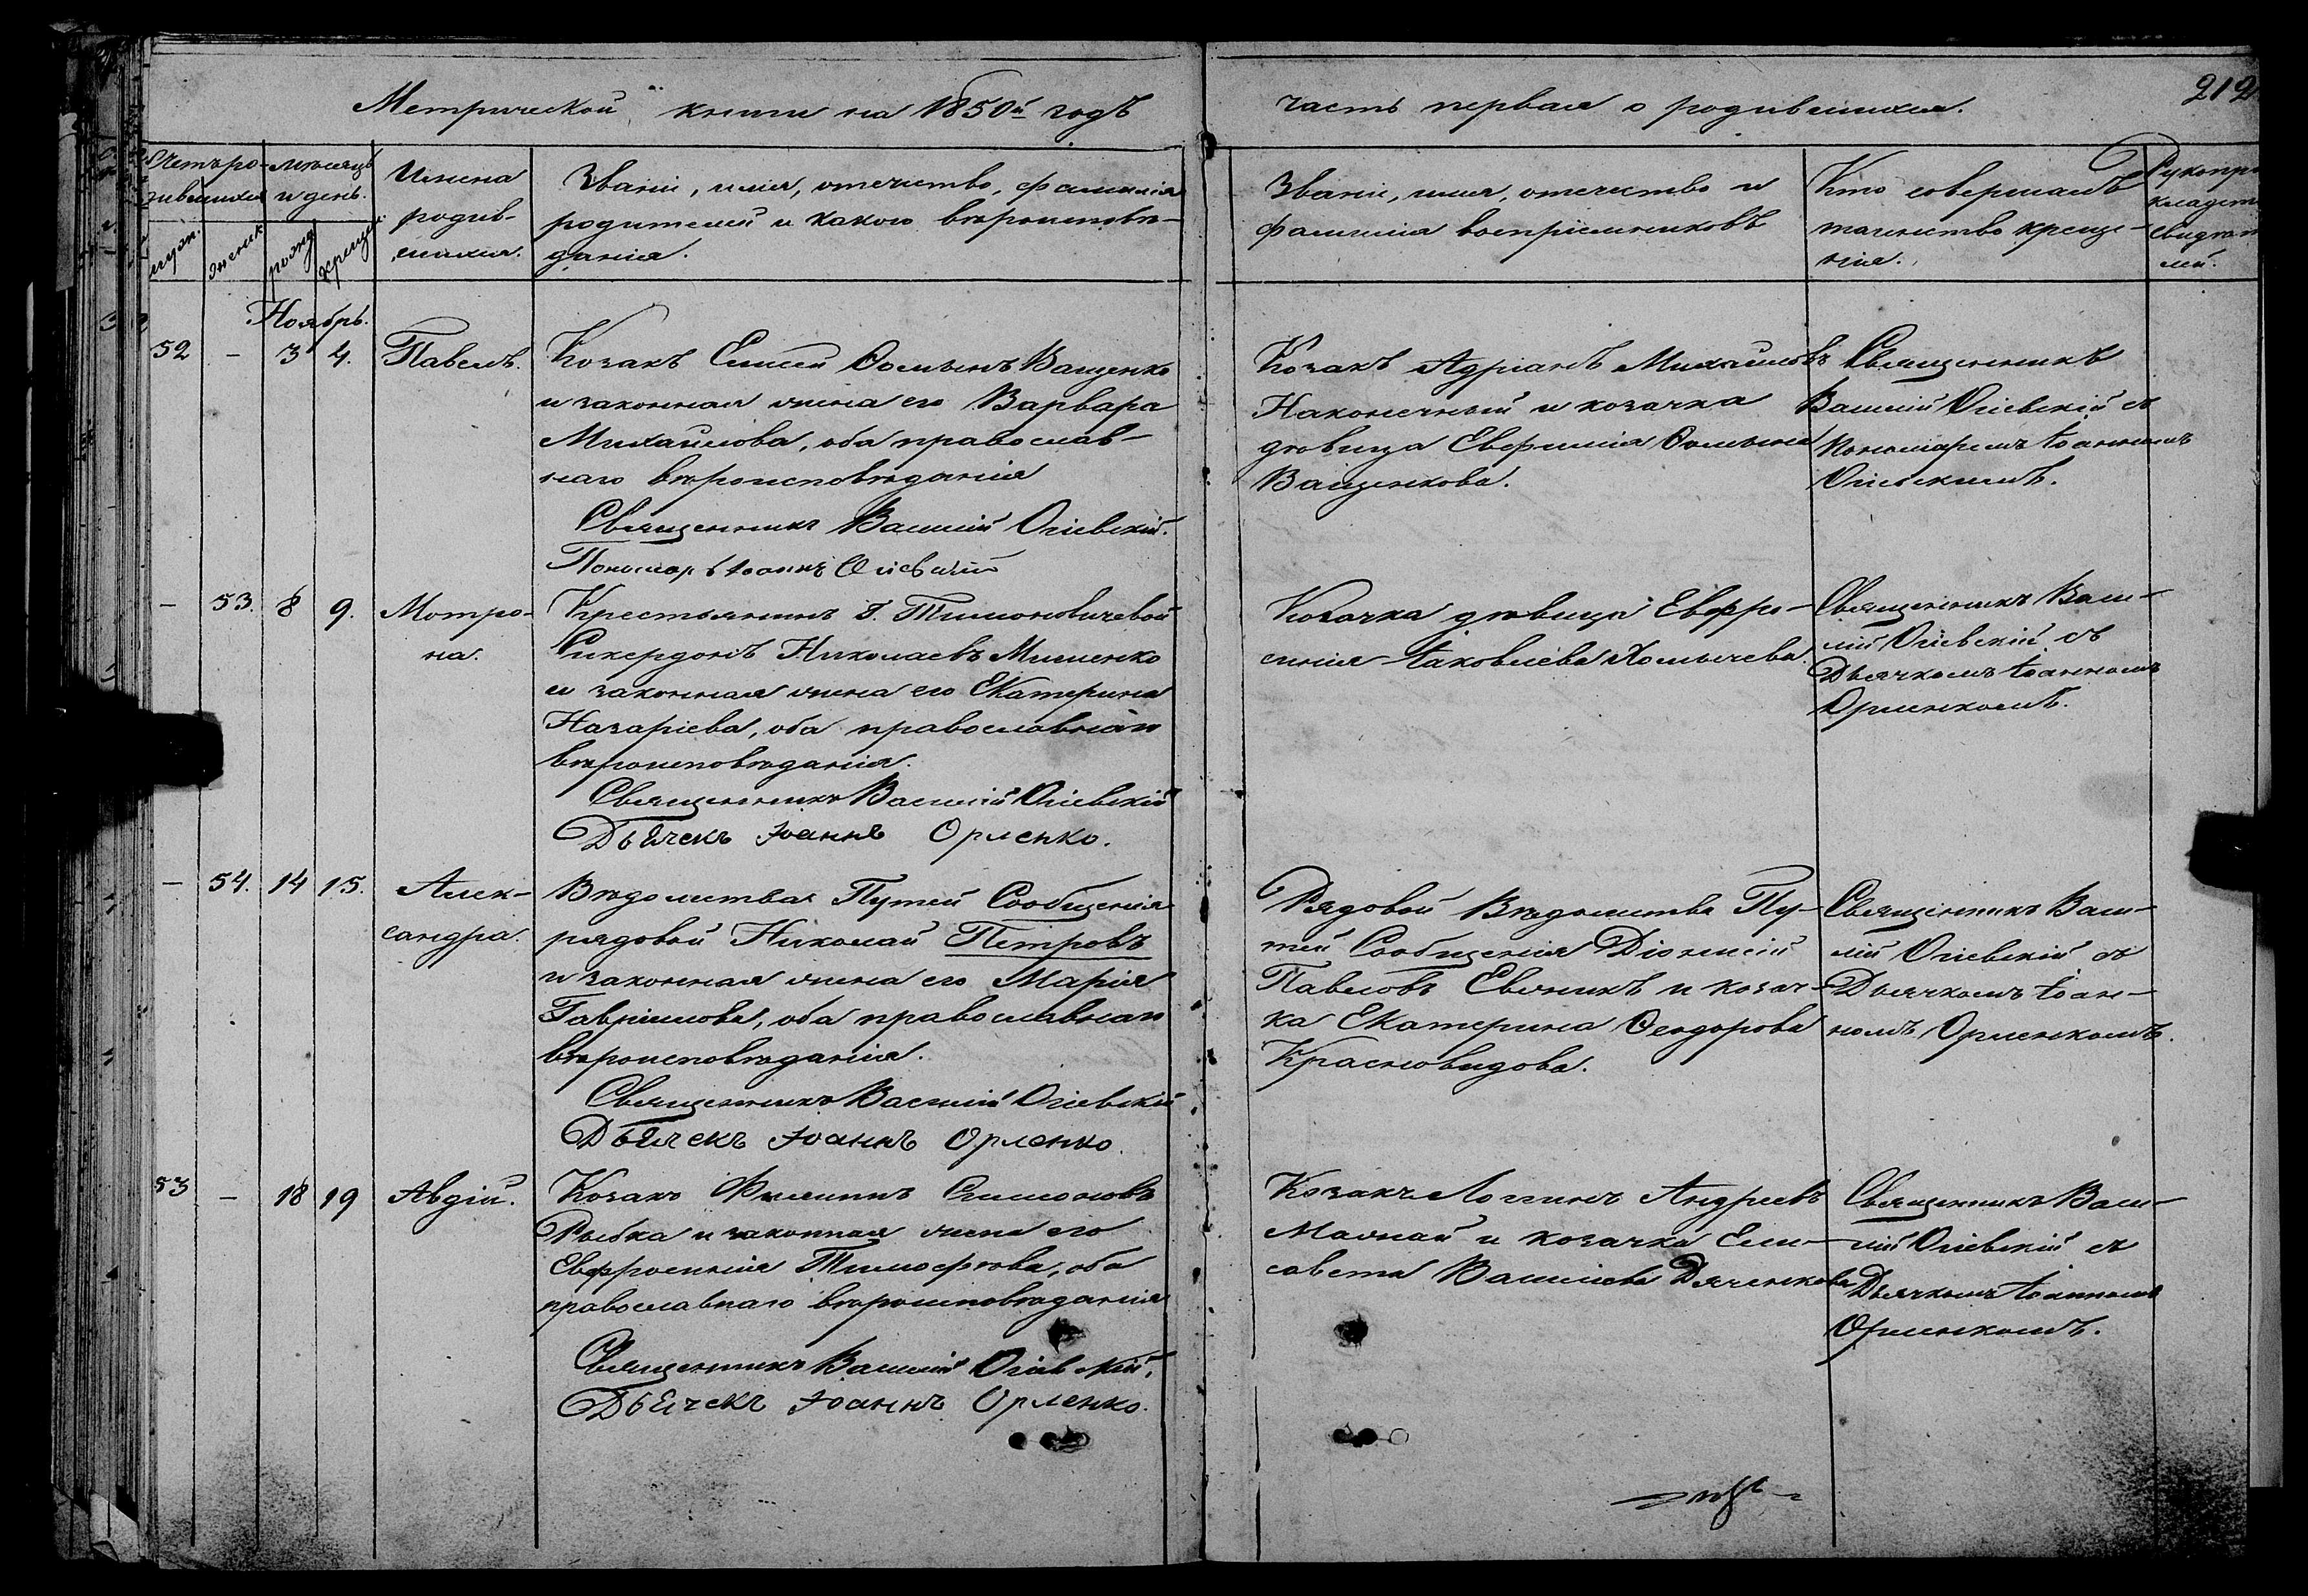 Метрической книги на 1850й годъ
часть первая о родившихся.
212
Счетъ ро-
дившихся
мѣсяцъ
и день.
Имена
родив-
шихся.
Званіе, имя, отечество, фамилія
родителей и какого вѣроисповѣ-
данія.
Званіе, имя, отечество и
фамилія воспріемниковъ
Кто совершалъ
таинство креще-
нія.
Рукопри
кладст
свидѣт
лей.
мужс.
женск.
рожд
крещен
Ноябрь.
52 – 3 4. Павелъ.
Козакъ Елисей Ѳоминъ Ващенко
и законная жена его Варвара
Михайлова, оба православ-
наго вѣроисповѣданія
Священникъ Василій Огіевскій.
Пономарь Іоаннъ Огіевскій
Козакъ Адріанъ Михайловъ
Наконечный и козачка
дѣвица Евфимія Ѳомина
Ващенкова.
Священникъ
Василій Огіевскій съ
Пономаремъ Іоанномъ
Огіевскимъ.
– 53. 8 9. Мотро-
на.
Крестьянинъ Г. Тимоновичевой
Спиридонъ Николаевъ Мисченко
и законная жена его Екатерина
Назаріева, оба православнаго
вѣроисповѣданія.
Священникъ Василій Огіевскій
Дьячекъ Іоаннъ Орленко.
Козачка дѣвица Евфро-
синія Іаковлева Хомичева.
Священникъ Васи-
лій Огіевскій съ
Дьячкомъ Іоанномъ
Орленкомъ.
– 54. 14 15. Алек-
сандра.
Вѣдомства Путей Сообщенія
рядовой Николай Петровъ
и законная жена его Марія
Гавріилова, оба православнаго
вѣроисповѣданія.
Священникъ Василій Огіевскій
Дьячекъ Іоаннъ Орленко.
Рядовой Вѣдомства Пу-
тей Сообщенія Діонисій
Павловъ Евеникъ и козач-
ка Екатерина Ѳеодорова
Красновидова.
Священникъ Васи-
лій Огіевскій съ
Дьячкомъ Іоан-
номъ Орленкомъ.
53 – 18 19 Авдій.
Козакъ Филиппъ Симоновъ
Рыбка и законная жена его
Евфросинія Тимофѣева, оба
православнаго вѣроисповѣданія
Священникъ Василій Огіевскій,
Дьячекъ Іоаннъ Орленко.
Козакъ Логгинъ Андреевъ
Мачкай и козачка Ели-
савета Василіева Дяченкова
Священникъ Васи-
лій Огіевскій съ
Дьячкомъ Іоанномъ
Орленкомъ.